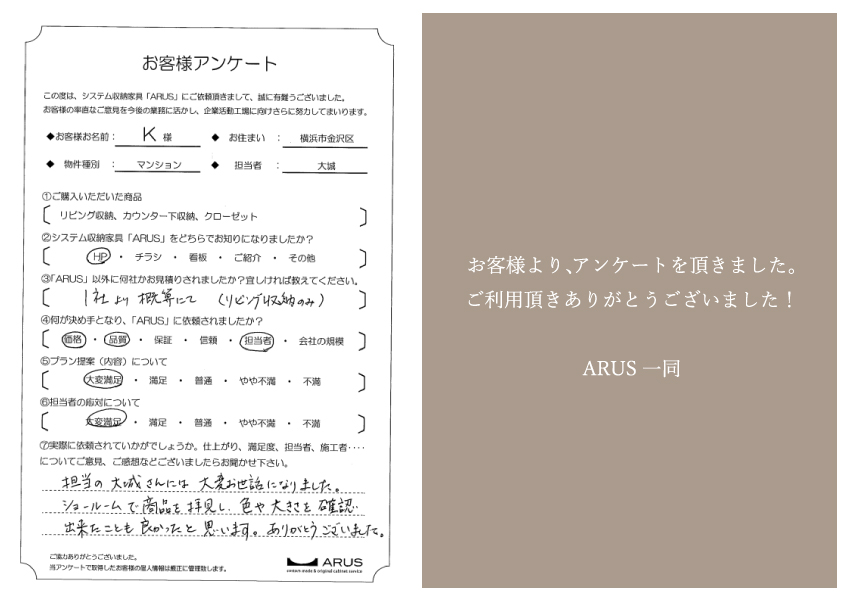 お客様アンケート
この度は、システム収納家具「ARUS」にご依頼頂きまして、誠に有難うございました。
お客様の率直なご意見を今後の業務に活かし、企業活動工場に向けさらに努力してまいります。
◆お客様お名前： K 様 ◆ お住まい ： 横浜市金沢区
◆ 物件種別 ： マンション ◆ 担当者 ： 大城
①ご購入いただいた商品
[ リビング収納、カウンター下収納、クローゼット ]
②システム収納家具「ARUS」をどちらでお知りになりましたか？
[ HP ・ チラシ ・ 看板 ・ ご紹介 ・ その他 ]
③「ARUS」以外に何社かお見積りされましたか？宜しければ教えてください。
[ 1社より 概算にて (リビング収納のみ) ]
④何が決め手となり、「ARUS」に依頼されましたか？
[ 価格 ・ 品質 ・ 保証 ・ 信頼 ・ 担当者 ・ 会社の規模 ]
⑤プラン提案（内容）について
[ 大変満足 ・ 満足 ・ 普通 ・ やや不満 ・ 不満 ]
⑥担当者の応対について
[ 大変満足 ・ 満足 ・ 普通 ・ やや不満 ・ 不満 ]
⑦実際に依頼されていかがでしょうか。仕上がり、満足度、担当者、施工者‥‥
についてご意見、ご感想などございましたらお聞かせ下さい。
担当の大城さんには 大変お世話になりました。
ショールームで商品を拝見し、色や大きさを確認
出来たことも良かったと思います。ありがとうございました。
ご協力ありがとうございました。
当アンケートで取得したお客様の個人情報は厳正に管理致します。
ARUS
custom made & original cabinet service
お客様より、アンケートを頂きました。
ご利用頂きありがとうございました！
ARUS 一同